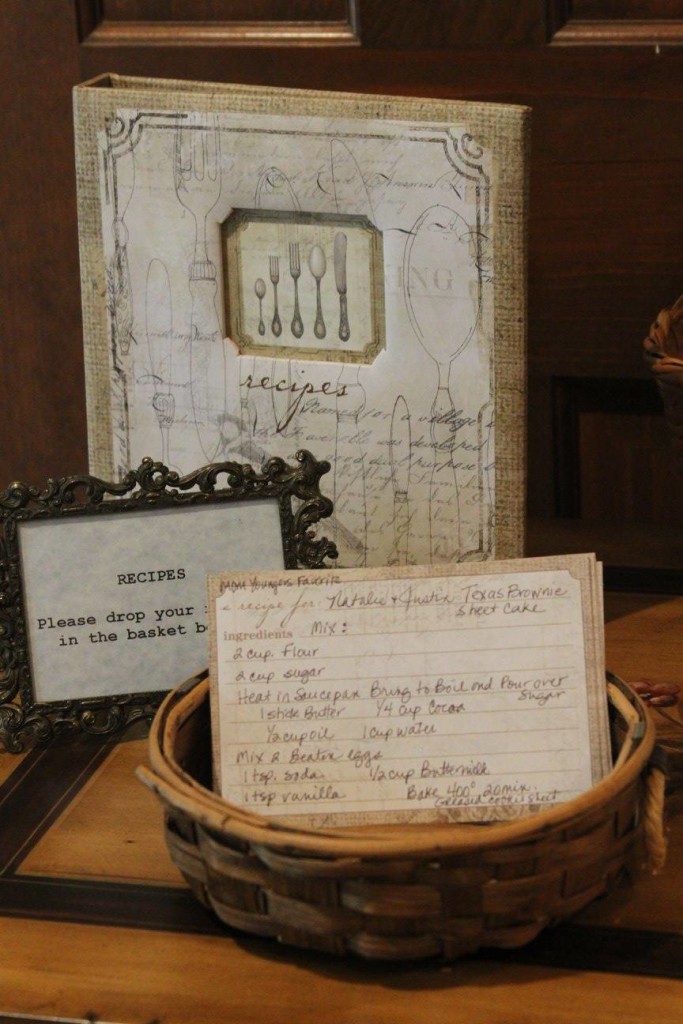 recipes
Named for a village
was developed
RECIPES
Please drop your
in the basket
Mom Youngers Favorite
a recipe for Natalie + Justin Texas Brownie
Sheet Cake
ingredients Mix:
2 cup. Flour
2 cup sugar
Heat in Saucepan Bring to Boil and Pour over
Sugar
1 stick Butter 1/4 cup Cocoa
1/2 cup oil 1 cup water
Mix 2 Beaten eggs
1 tsp. soda 1/2 cup Buttermilk
1 tsp vanilla Bake 400° 20 min.
Greased cookie sheet